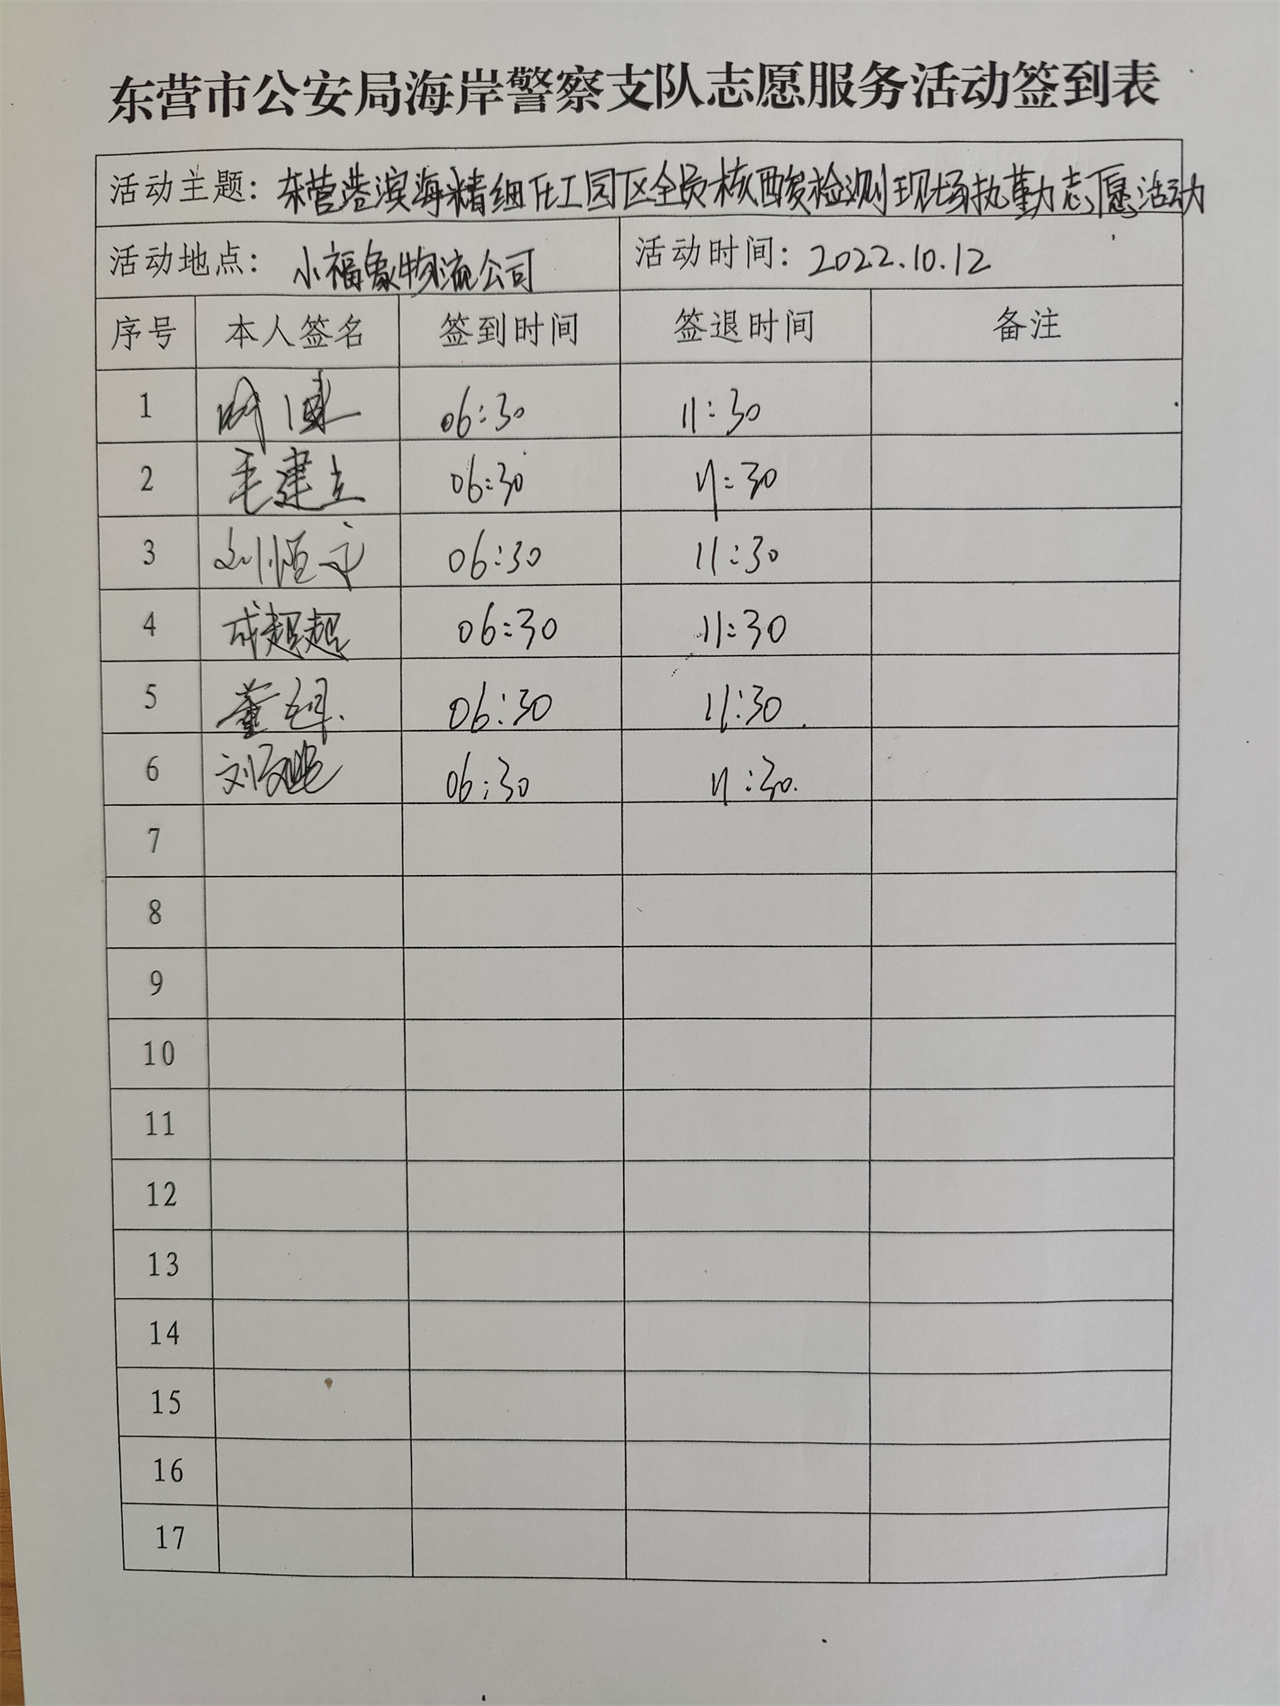 东营市公安局海岸警察支队志愿服务活动签到表
活动主题：东营港滨海精细化工园区全员核酸检测现场执勤志愿活动
活动地点：小福象物流公司 活动时间：2022.10.12
序号 本人签名 签到时间 签退时间 备注
1 06:30 11:30
2 毛建立 06:30 11:30
3 刘恒 06:30 11:30
4 成超超 06:30 11:30
5 董 06:30 11:30
6 刘 06:30 11:30
7
8
9
10
11
12
13
14
15
16
17